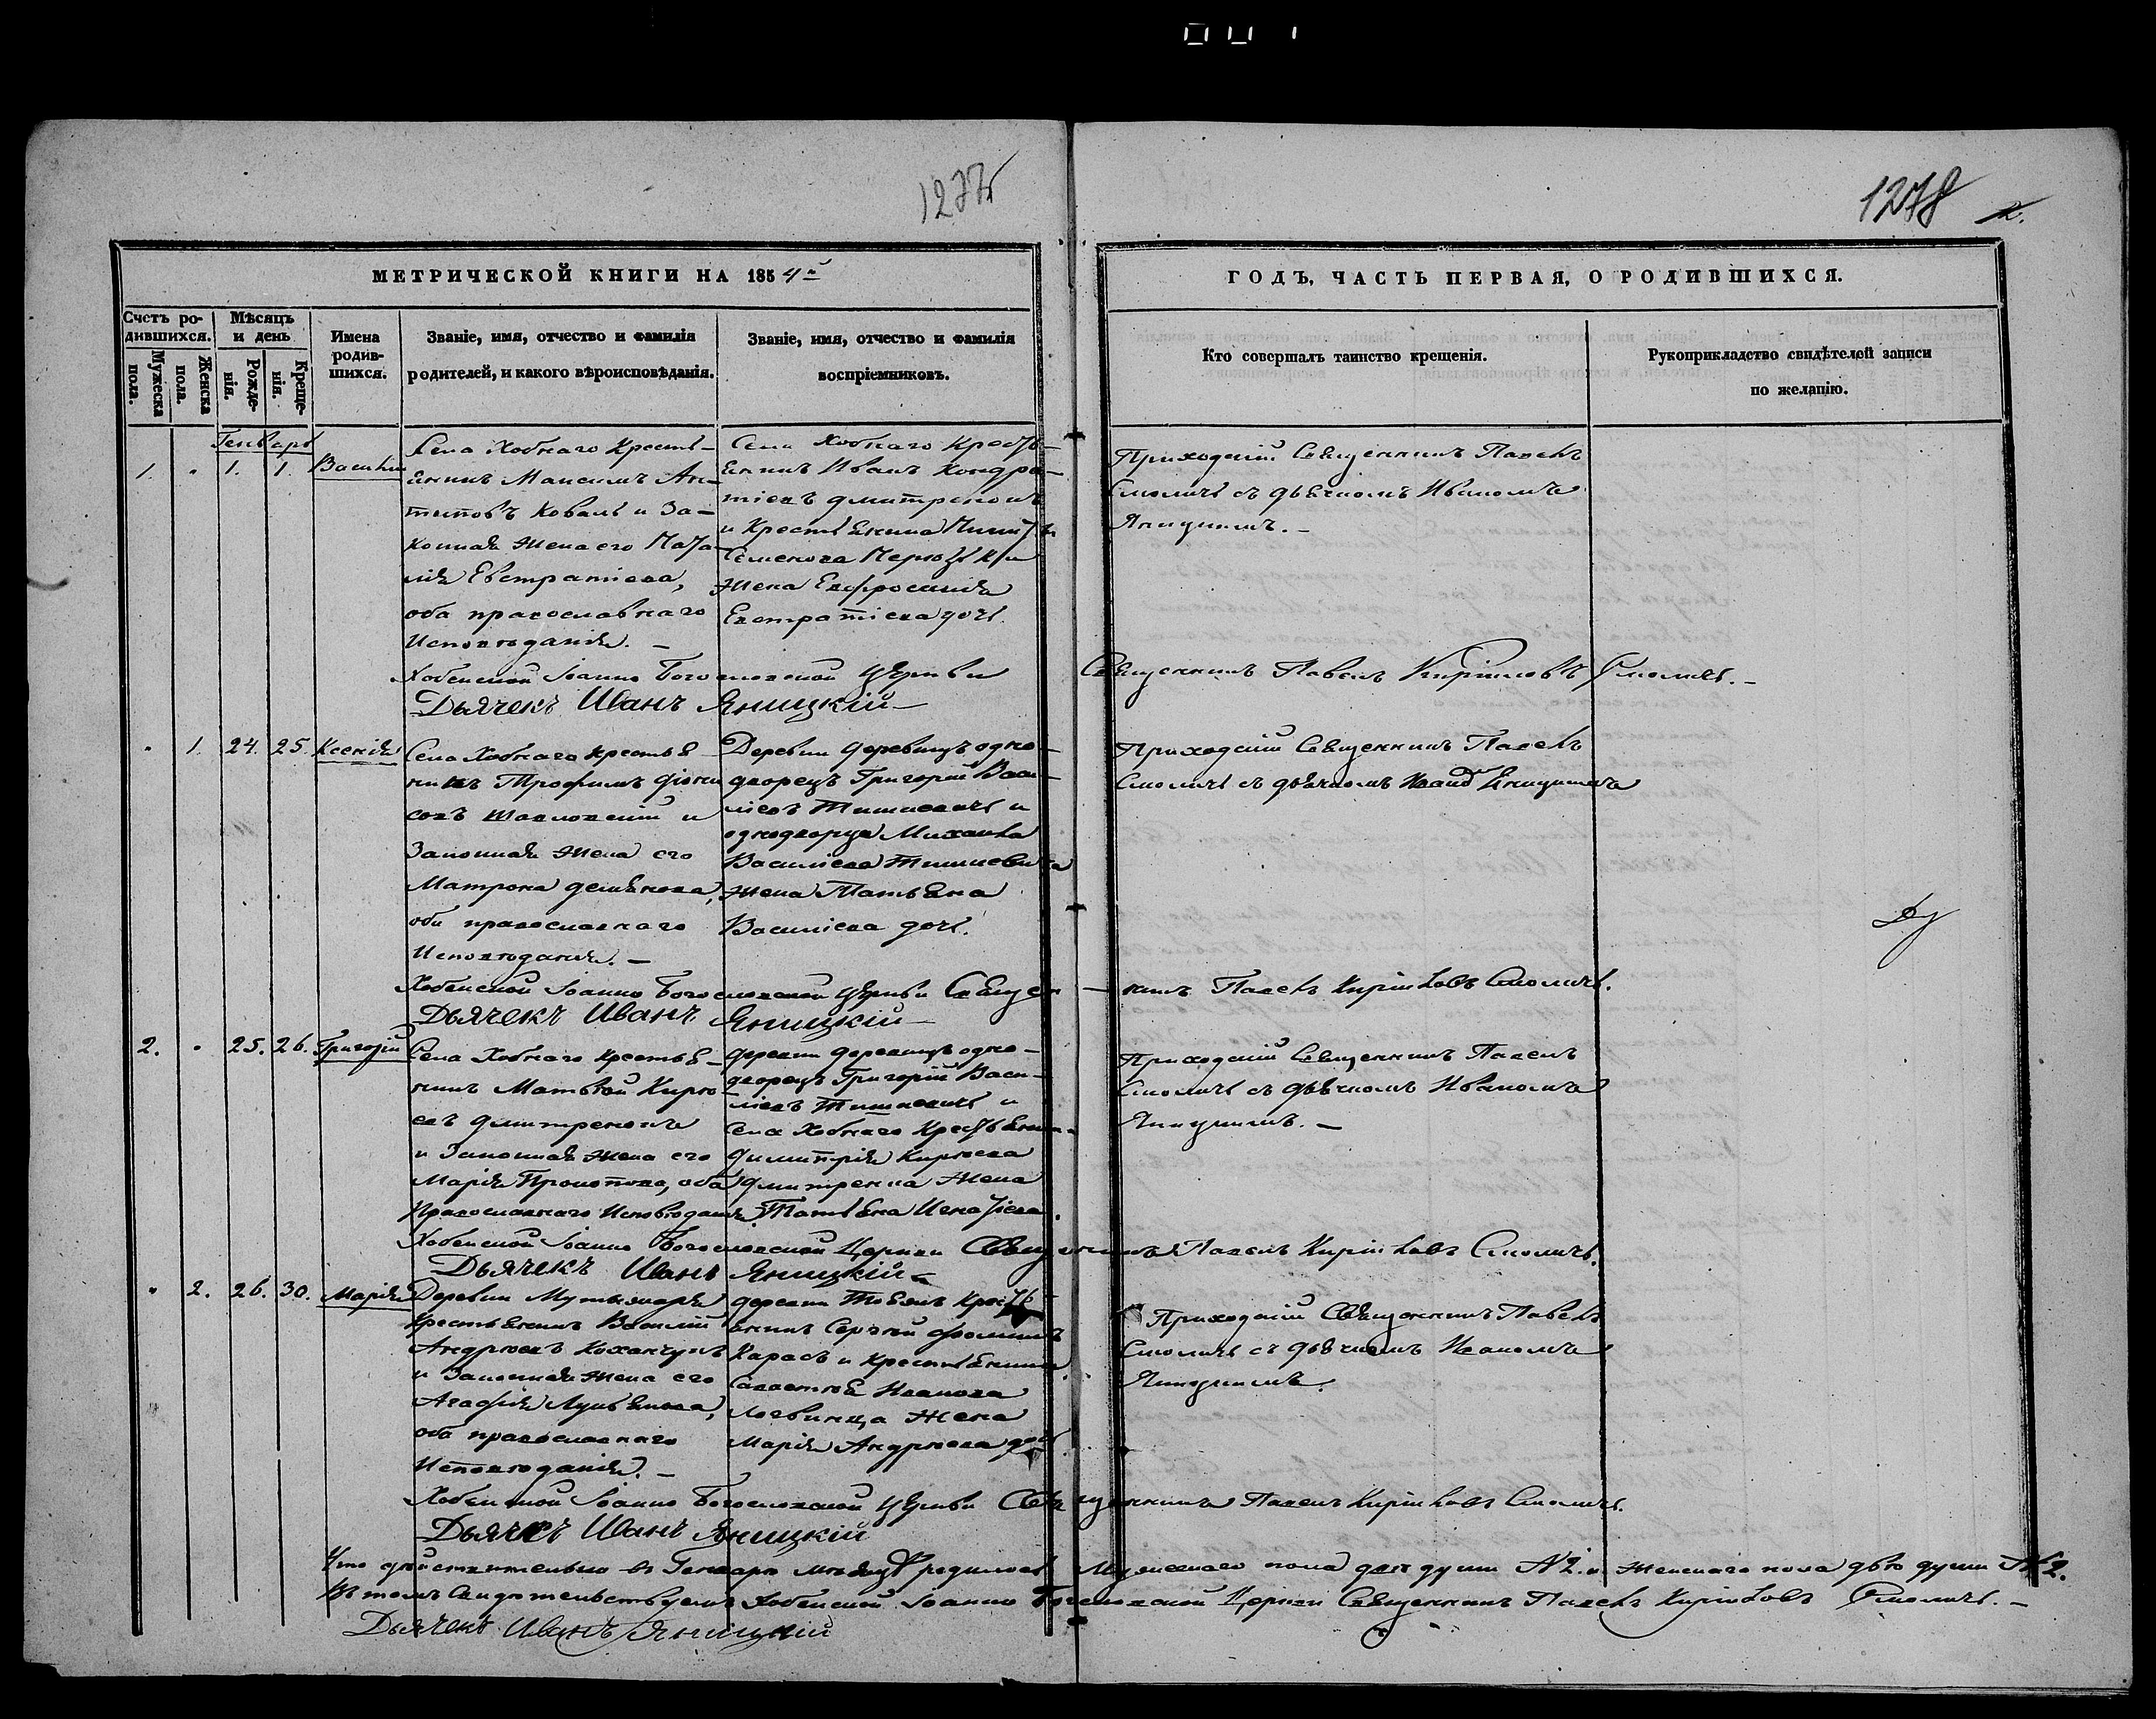 1277
1278
2.
МЕТРИЧЕСКОЙ КНИГИ НА 1854й
ГОДЪ, ЧАСТЬ ПЕРВАЯ, О РОДИВШИХСЯ.
Счетъ родившихся.
Мужеска пола.
Женска пола.
Мѣсяцъ и день
Рожденія.
Крещенія.
Имена родившихся.
Званіе, имя, отчество и фамилія
родителей, и какого вѣроисповѣданія.
Званіе, имя, отчество и фамилія
воспріемниковъ.
Кто совершалъ таинство крещенія.
Рукоприкладство свидѣтелей записи
по желанію.
Генварь
1. " 1. 1.
Села Хобнаго Кресть-
янинъ Максимъ Ан-
типовъ Коваль и За-
конная жена его Ната-
лія Евстратіева,
оба православнаго
Исповѣданія. –
Села Хобнаго Кресть-
янинъ Иванъ Кондра-
тіевъ Дмитренокъ
и Крестьянина
Семенова жена Евфросинія
Евстратіева дочь.
Приходскій Священникъ Павелъ
Смоличъ съ дьячкомъ Иваномъ
Яницкимъ. –
Хобенской Іоанно Богословской Церкви Священникъ Павелъ Кириловъ Смоличъ. –
Дьячекъ Иванъ Яницкій
" 1. 24. 25. Ксенія
Села Хобнаго крестья-
нинъ Трофимъ
и
Законная жена его
Матрона Демьянова,
оба православнаго
Исповѣданія. –
Деревни Деревицъ одно-
дворецъ Григорій Васи-
ліевъ Тишкевичъ и
однодворца Михаила
Василіева Тишкевича
жена Татьяна
Василіева дочь.
Приходскій Священникъ Павелъ
Смоличъ съ дьячкомъ Иваномъ Яницкимъ
Хобенской Іоанно Богословской Церкви Священникъ Павелъ Кириловъ Смоличъ.
Дьячекъ Иванъ Яницкій
2. " 25. 26. Григорій
Села Хобнаго крестья-
нинъ Матвѣй Кирѣ-
евъ Дмитренокъ
и Законная жена его
Марія Прокопова, оба
Православнаго Исповѣданія.
Деревни Деревицъ одно-
дворецъ Григорій Васи-
ліевъ Тишкевичъ и
Села Хобнаго Крестьянина
Димитрія Кирѣева
Дмитренка жена
Татьяна Игнатіева.
Приходскій Священникъ Павелъ
Смоличъ съ дьячкомъ Иваномъ
Яницкимъ. –
Хобенской Іоанно Богословской Церкви Священникъ Павелъ Кириловъ Смоличъ.
Дьячекъ Иванъ Яницкій
" 2. 26. 30. Марія
Деревни
Крестьянинъ Василій
Андреевъ
и Законная жена его
Агафія Лукьянова,
оба православнаго
Исповѣданія. –
деревни Кресть-
янинъ Сергѣй
Карась и Крестьянина
Савостѣя Иванова
Логвинца жена
Марія Андреева дочь
Приходскій Священникъ Павелъ
Смоличъ съ дьячкомъ Иваномъ
Яницкимъ.
Хобенской Іоанно Богословской Церкви Священникъ Павелъ Кириловъ Смоличъ.
Дьячекъ Иванъ Яницкій
Что дѣйствительно въ Генварѣ мѣсяцѣ родилось Мужескаго пола двѣ души №2. и Женскаго пола двѣ души №2.
Въ томъ Свидѣтельствуемъ Хобенской Іоанно Богословской Церкви Священникъ Павелъ Кириловъ Смоличъ. –
Дьячекъ Иванъ Яницкій